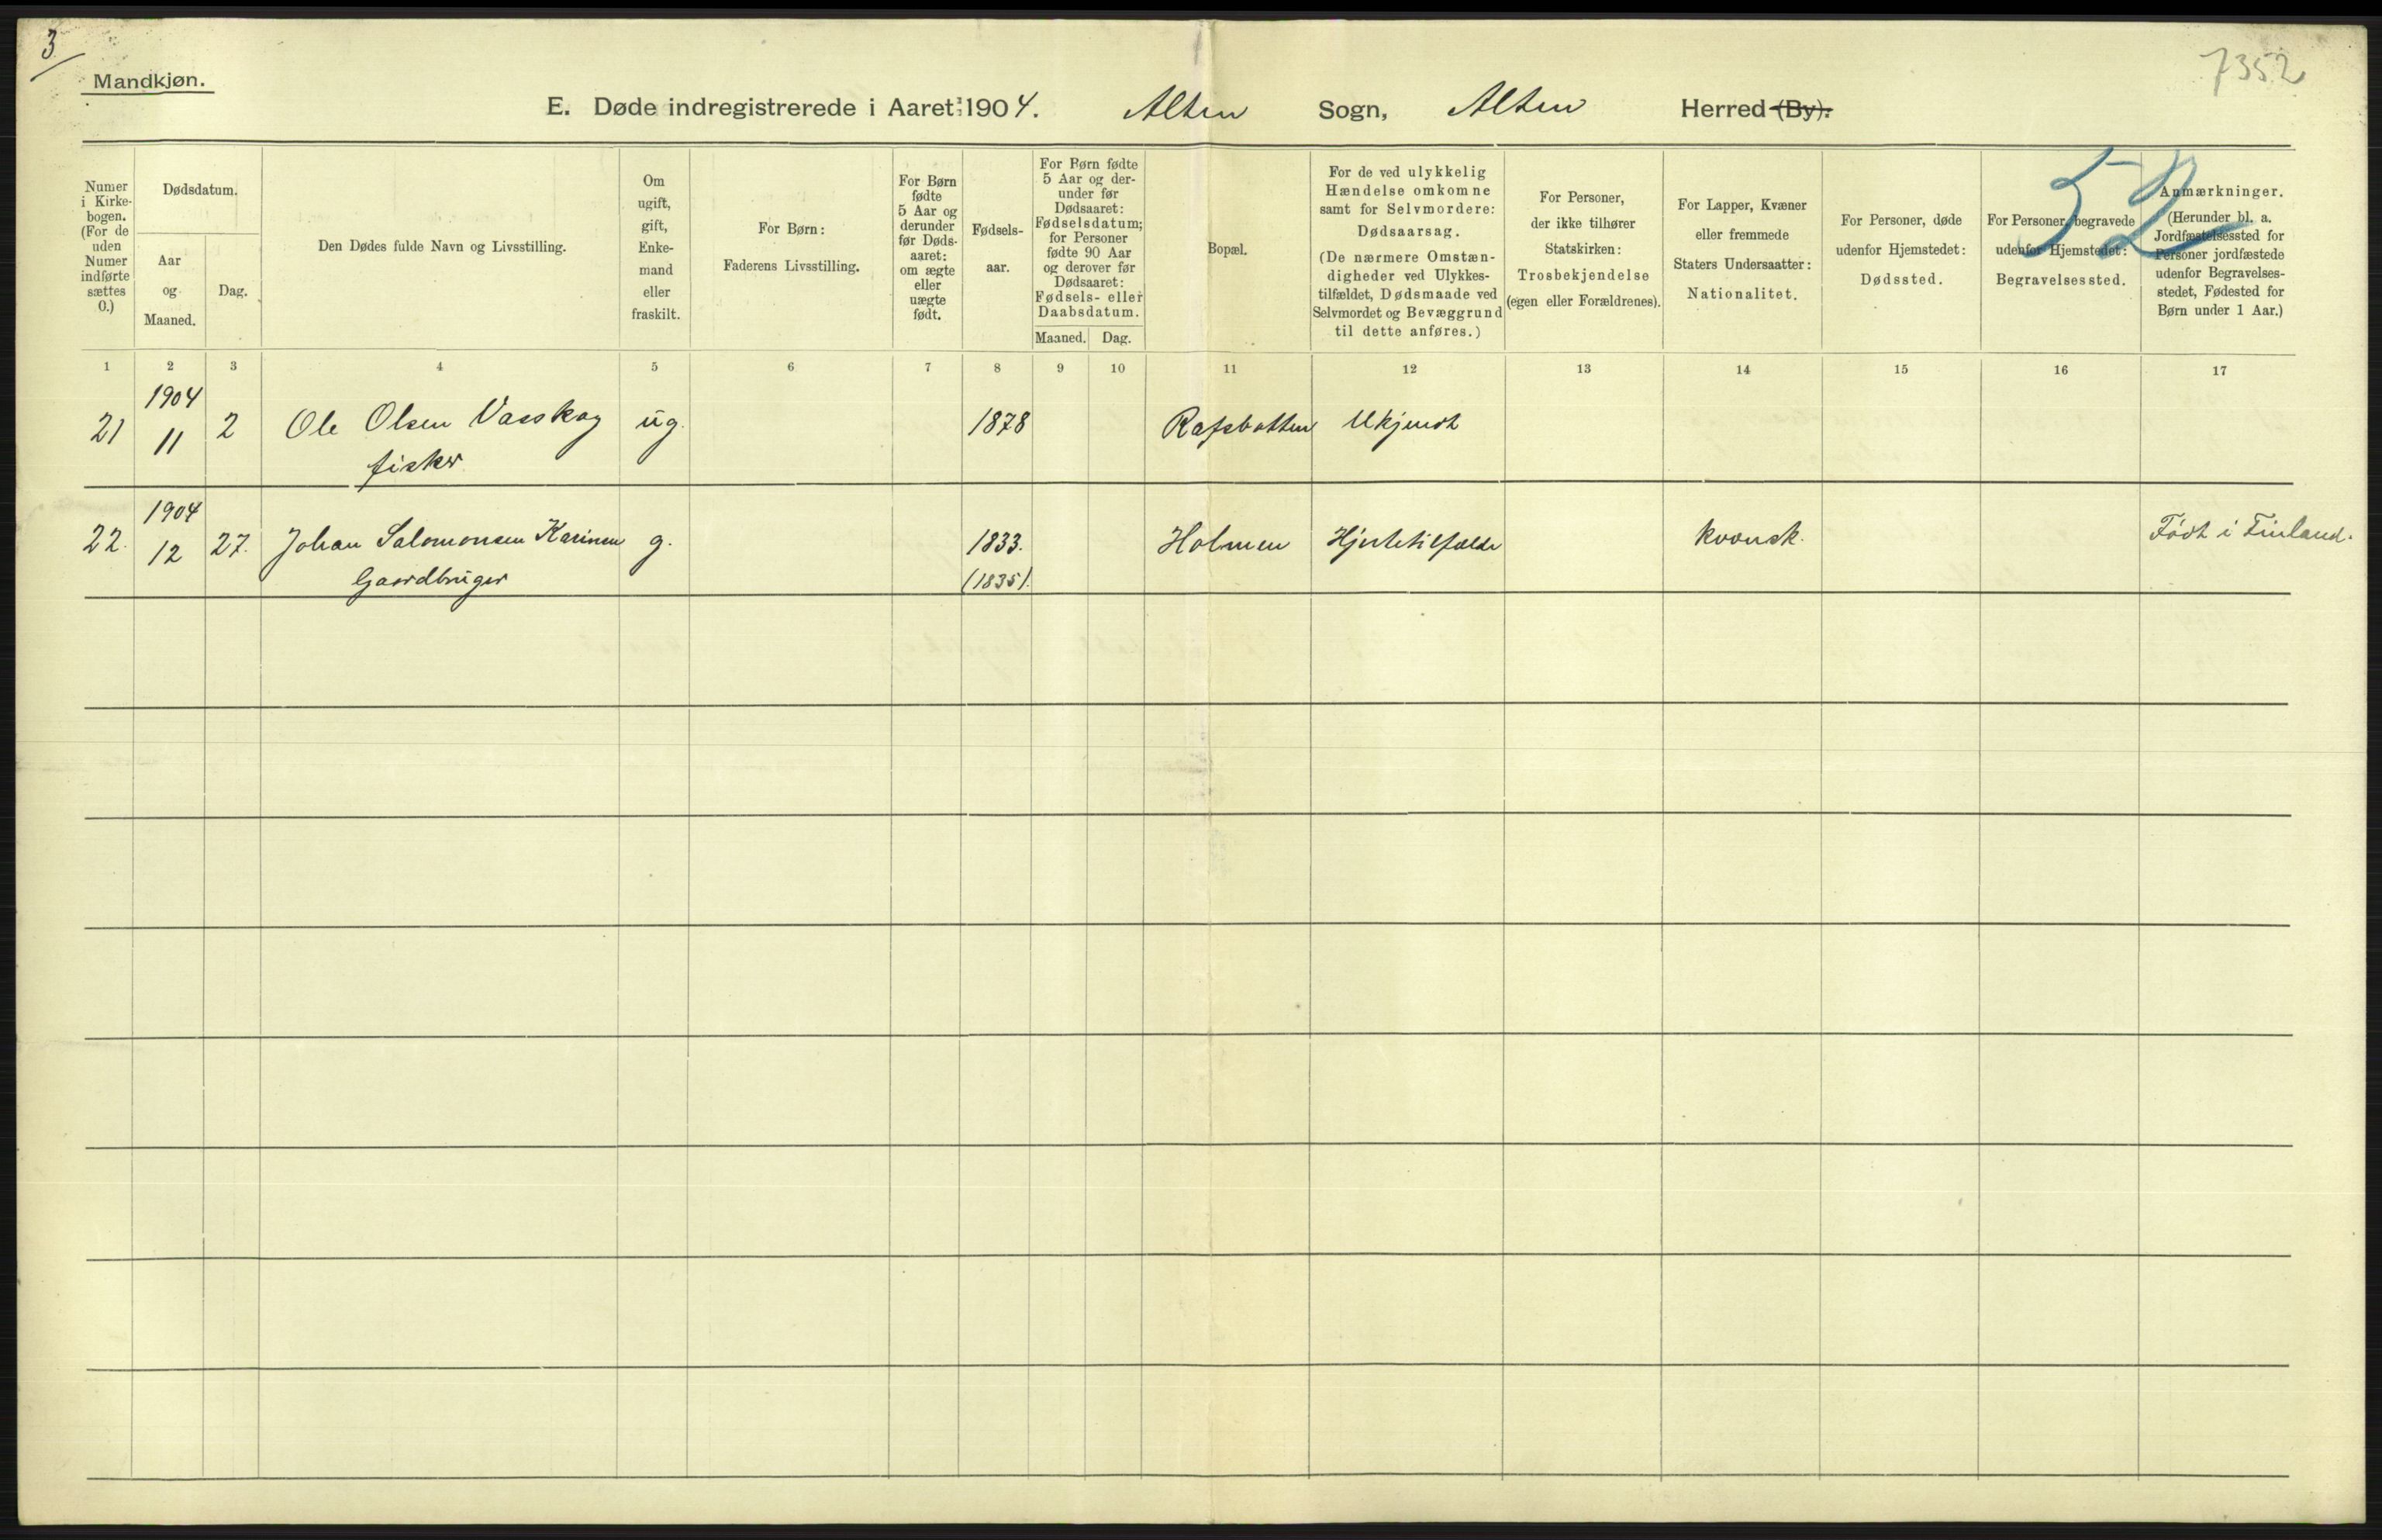 3
7352
Mandkjøn.
E. Døde indregistrerede i Aaret 1904. Alten Sogn, Alten Herred (By).
52
Numer i Kirkebogen. (For de uden Numer indførte sættes 0.)
Dødsdatum.
Aar og Maaned.
Dag.
Den Dødes fulde Navn og Livsstilling.
Om ugift, gift, Enkemand eller fraskilt.
For Børn: Faderens Livsstilling.
For Børn fødte 5 Aar og derunder før Dødsaaret: om ægte eller uægte født.
Fødselsaar.
For Børn fødte 5 Aar og derunder før Dødsaaret: Fødselsdatum; for Personer fødte 90 Aar og derover før Dødsaaret: Fødsels- eller Daabsdatum.
Maaned. Dag.
Bopæl.
For de ved ulykkelig Hændelse omkomne samt for Selvmordere: Dødsaarsag. (De nærmere Omstændigheder ved Ulykkestilfældet, Dødsmaade ved Selvmordet og Bevæggrund til dette anføres.)
For Personer, der ikke tilhører Statskirken: Trosbekjendelse (egen eller Forældrenes).
For Lapper, Kvæner eller fremmede Staters Undersaatter: Nationalitet.
For Personer, døde udenfor Hjemstedet: Dødssted.
For Personer, begravede udenfor Hjemstedet: Begravelsessted.
Anmærkninger. (Herunder bl. a. Jordfæstelsessted for Personer jordfæstede udenfor Begravelsesstedet, Fødested for Børn under 1 Aar.)
1 2 3 4 5 6 7 8 9 10 11 12 13 14 15 16 17
1904
21 11 2 Ole Olsen Vasskog ug. 1878 Rafsbotten Ukjendt
fisker
1904
22. 12 27. Johan Salomonsen Karinen g. 1833. Holmen Hjertetilfælde kvænsk. Født i Finland.
Gaardbruger (1835).